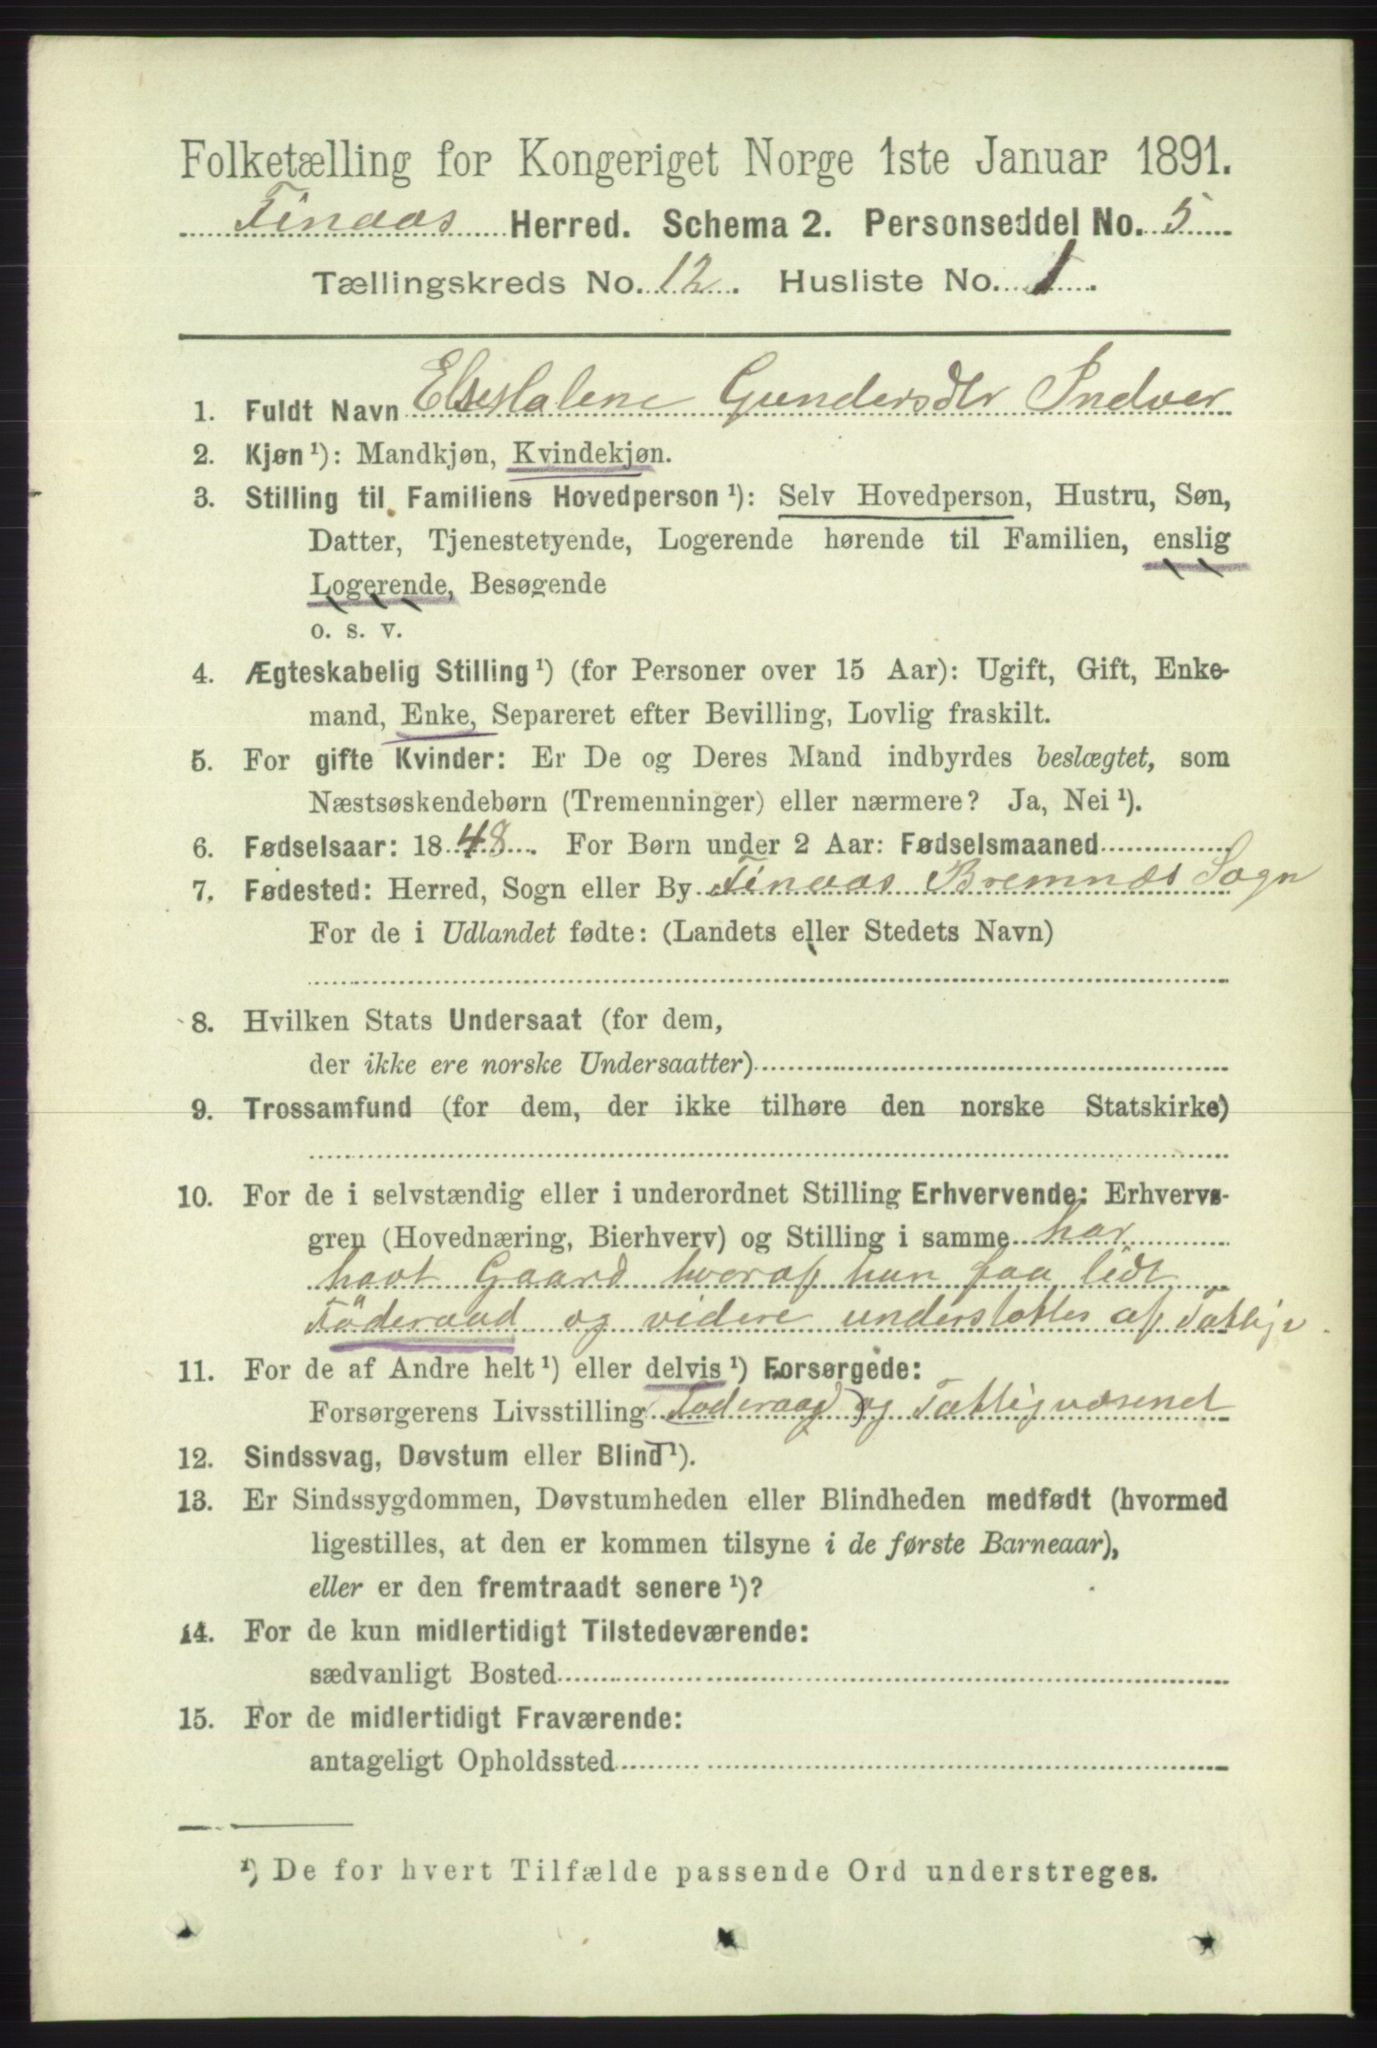 Folketælling for Kongeriget Norge 1ste Januar 1891.
Finaas Herred. Schema 2. Personseddel No. 5
Tællingskreds No. 12. Husliste No. 1.
1. Fuldt Navn Else Malene Gundersdtr Indvær
2. Kjøn ¹): Mandkjøn, Kvindekjøn.
3. Stilling til Familiens Hovedperson ¹): Selv Hovedperson, Hustru, Søn,
Datter, Tjenestetyende, Logerende hørende til Familien, enslig
Logerende, Besøgende
o. s. v.
4. Ægteskabelig Stilling ¹) (for Personer over 15 Aar): Ugift, Gift, Enke-
mand, Enke, Separeret efter Bevilling, Lovlig fraskilt.
5. For gifte Kvinder: Er De og Deres Mand indbyrdes beslægtet, som
Næstsøskendebørn (Tremenninger) eller nærmere? Ja, Nei ¹).
6. Fødselsaar: 1848. For Børn under 2 Aar: Fødselsmaaned
7. Fødested: Herred, Sogn eller By Finaas Bremnæs Sogn
For de i Udlandet fødte: (Landets eller Stedets Navn)
8. Hvilken Stats Undersaat (for dem,
der ikke ere norske Undersaatter)
9. Trossamfund (for dem, der ikke tilhøre den norske Statskirke)
10. For de i selvstændig eller i underordnet Stilling Erhvervende: Erhvervs-
gren (Hovednæring, Bierhverv) og Stilling i samme har
havt Gaard hvoraf hun faa lidt
Föderaad og videre understøttes af
11. For de af Andre helt ¹) eller delvis ¹) Forsørgede:
Forsørgerens Livsstilling Föderaad og Fattigvæsenet
12. Sindssvag, Døvstum eller Blind ¹).
13. Er Sindssygdommen, Døvstumheden eller Blindheden medfødt (hvormed
ligestilles, at den er kommen tilsyne i de første Barneaar),
eller er den fremtraadt senere ¹)?
14. For de kun midlertidigt Tilstedeværende:
sædvanligt Bosted
15. For de midlertidigt Fraværende:
antageligt Opholdssted
¹) De for hvert Tilfælde passende Ord understreges.